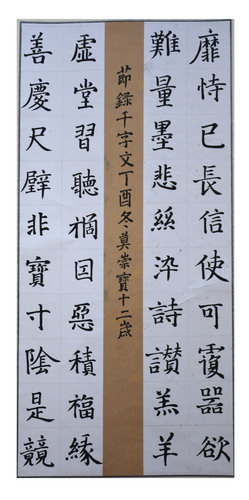 靡恃已長信使可覆器欲
難量墨悲絲染詩讚羔羊
節錄千字文丁酉冬莫崇寶十二歲
虛堂習聽禍因惡積福緣
善慶尺璧非寶寸陰是競